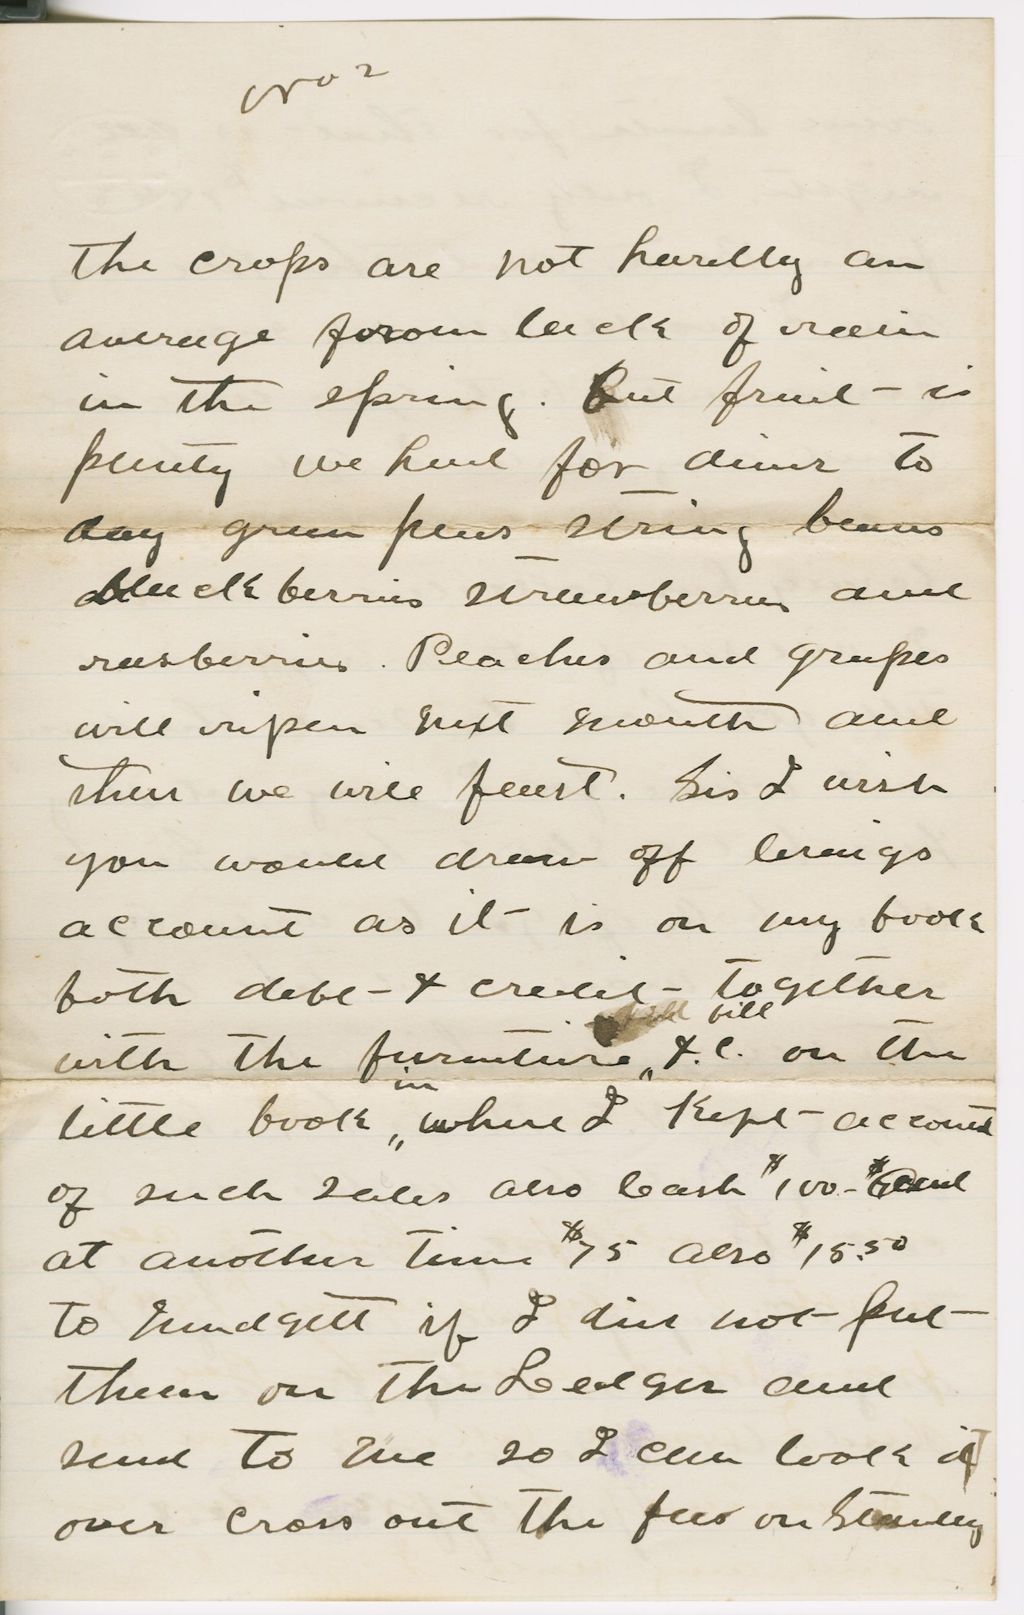 No 2
the crops are not hardly an
average from lack of rain
in the spring. But fruit is
plenty we had for diner to
day green peas string beans
blackberries strawberries and
rasberries. Peaches and grapes
will ripen next month and
then we will feast. Sis I wish
you would draw off
account as it is on my book
both debt & credit together
bill
with the furniture " &.c. on the
in
little book " where I kept account
of such sales also Cash $100-
at another time $75 also $15.50
to Mudgett if I did not put
them on the Ledger and
send to me so I can look it
over cross out the fees on Stanley